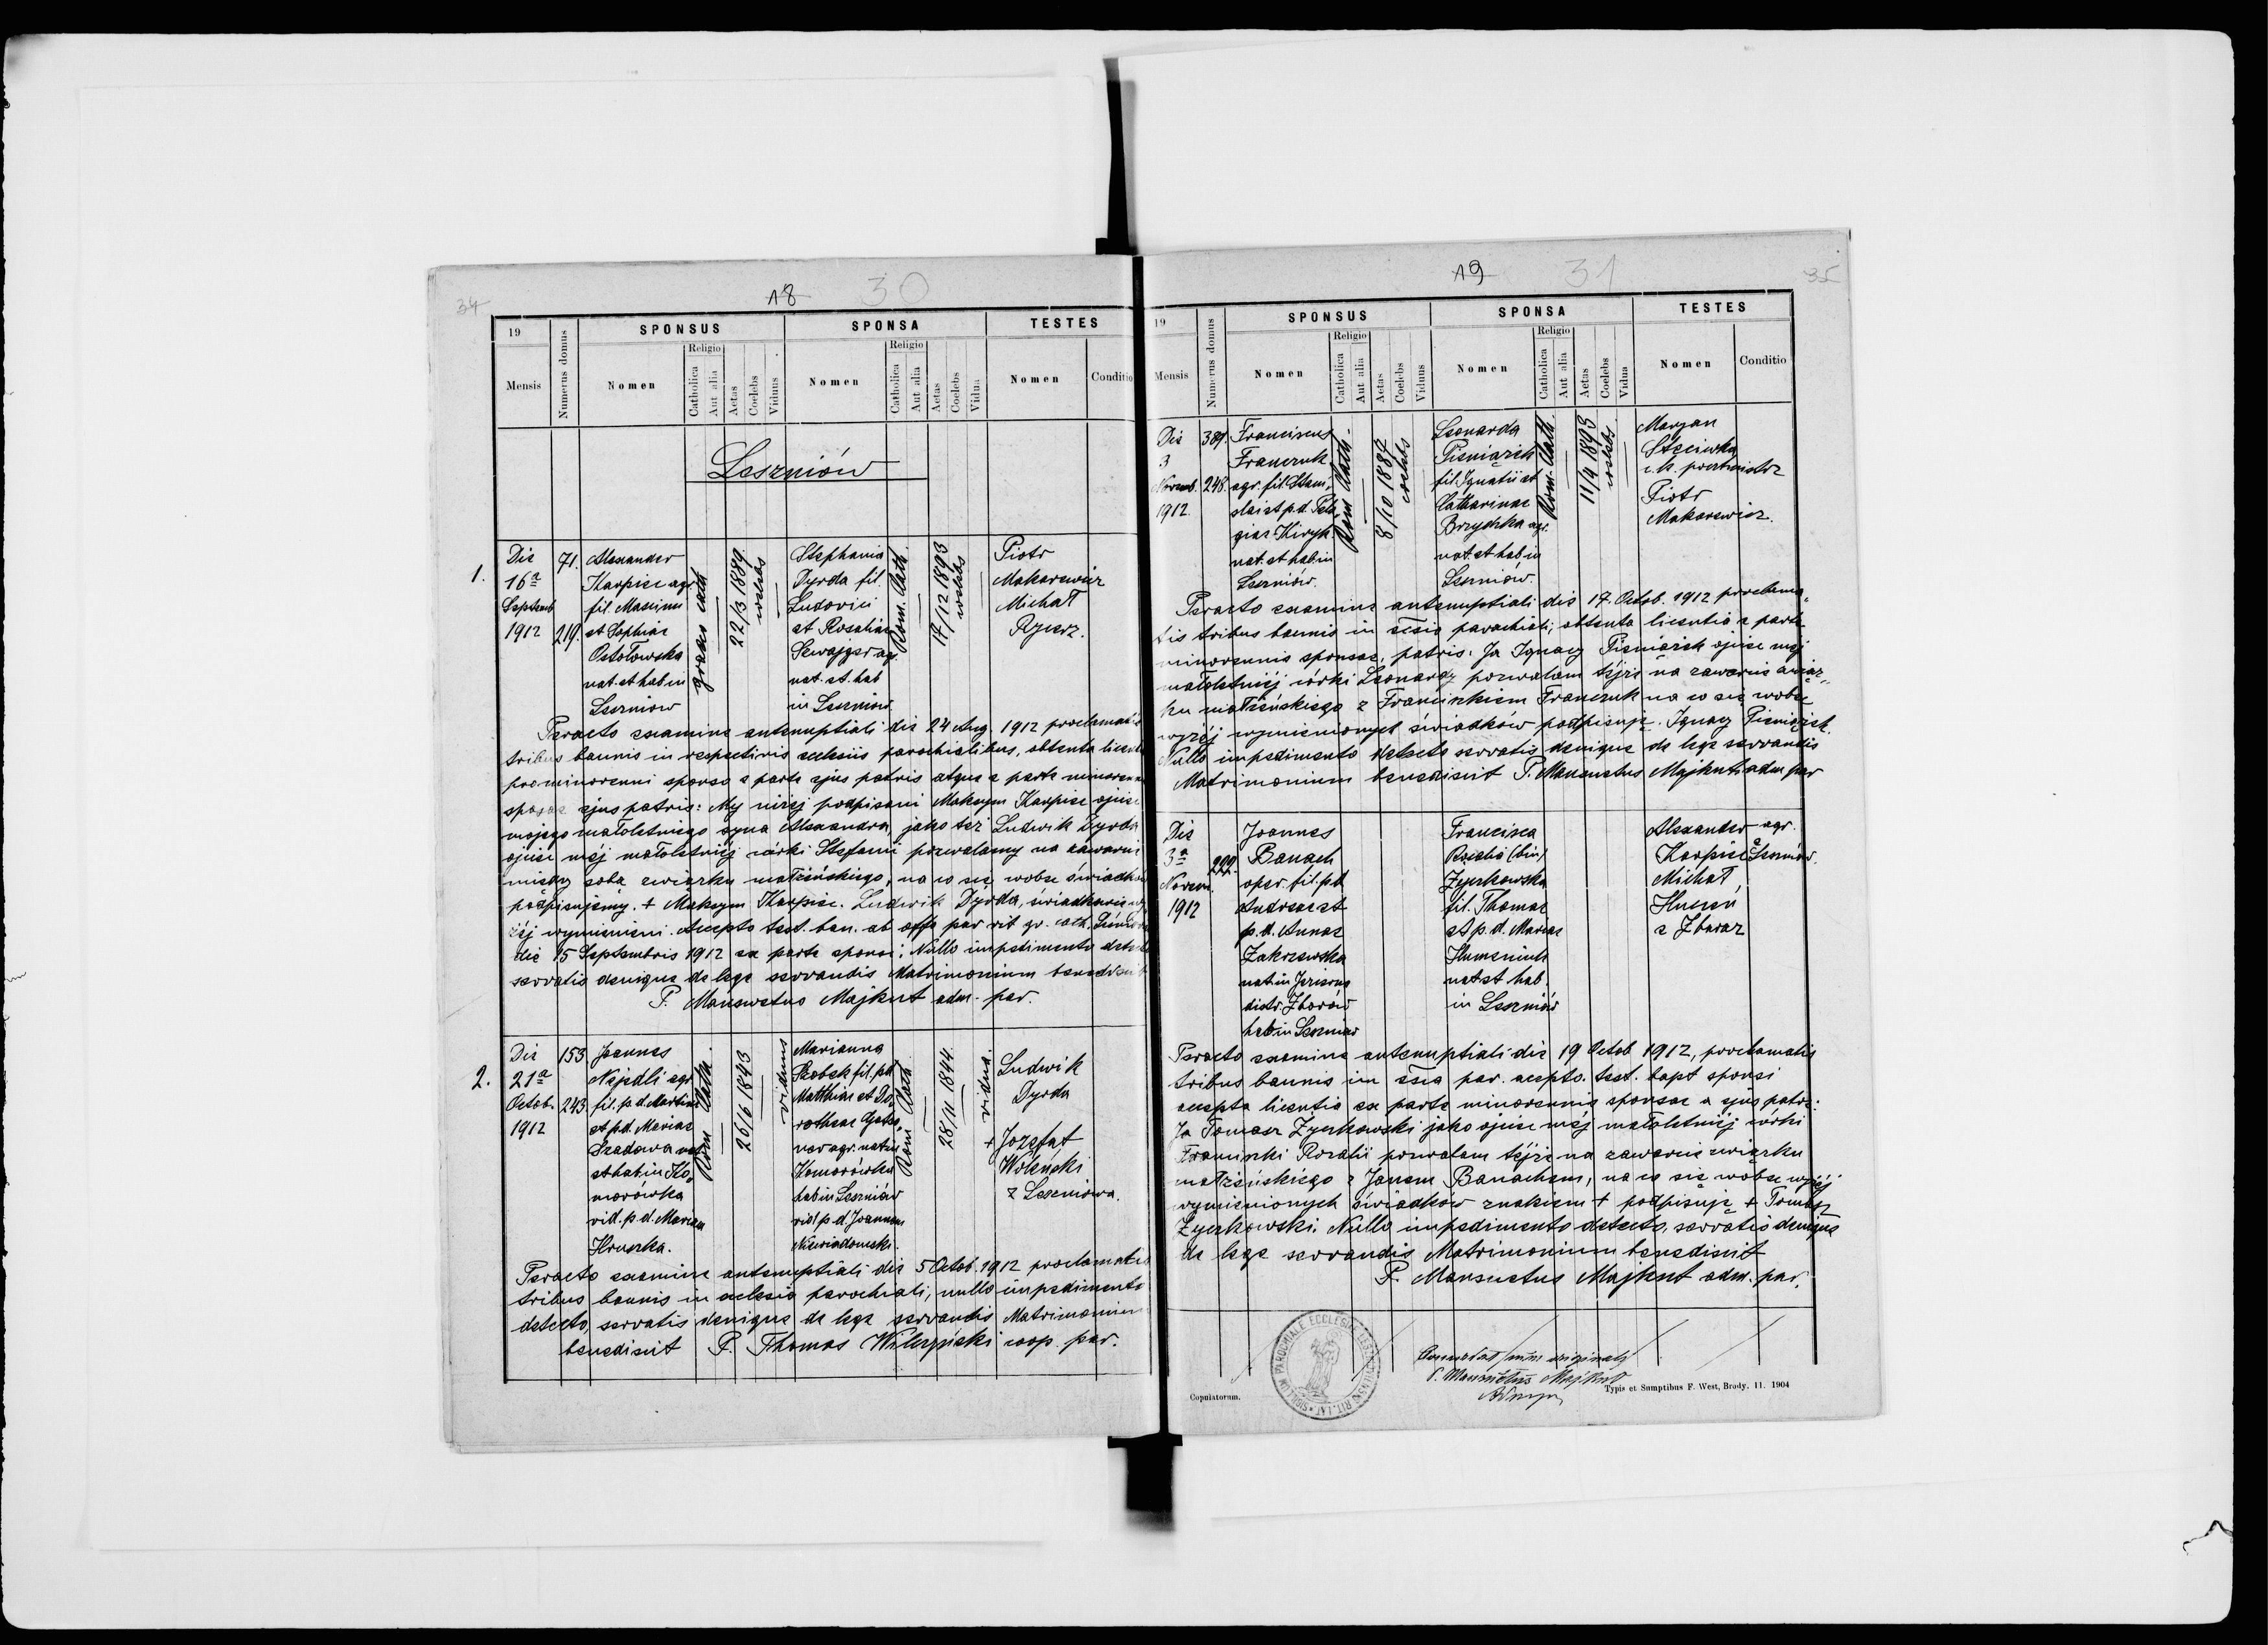 34
18
30
19
Mensis
Numerus domus
SPONSUS
Nomen
Religio
Catholica
Aut alia
Aetas
Coelebs
Viduus
SPONSA
Nomen
Religio
Catholica
Aut alia
Aetas
Coelebs
Vidua
TESTES
Nomen
Conditio
Leszniów
1.
Die
16ª
Septemb
1912
71.
219.
Alexander
Karpisz agr.
fil. Maximi
et Sophiae
Ostołowska
nat. et hab in
Leszniow
graeco cath
22/3 1889.
coelebs
Stephania
Dyrda fil.
Ludovici
et Rosaliae
agr.
nat. et. hab
in Leszniow
Rom. Cath.
17/12 1893
coelebs
Piotr
Makarewicz
Michał
Peracto examine antenuptiali die 24 Aug. 1912 proclamatis
tribus bannis in respectivis ecclesiis parochialibus, obtenta
pro minorenni sponso a parte ejus patris atque a parte
ejus patris: My niżej podpisani Maksym Karpisz ojciec
mojego małoletniego syna Alexandra, jako też Ludwik Dyrda
ojciec mej małoletniej córki Stefanii pozwalamy na
między sobą związku małżeńskiego, na co się wobec
podpisujemy. + Maksym Karpisz. Ludwik Dyrda, świadkowie
żej wymienieni. Accepto test. ban. ab offo par rit gr. cath.
die 15 Septembris 1912 ex parte sponsi; Nullo impedimento
servatis denique de lege servandis Matrimonium
P. Mansuetus Majkut adm. par.
2.
Die
21ª
Octob.
1912
153
243
Joannes
Nejedli agr
fil. p. d. Martini
et p.d. Mariae
Szadowa nat
et hab. in Ko-
morówka
vid. p. d. Mariam
Hruszka.
Rom Cath.
26/6 1843
viduus
Marianna
Skobek fil. p.d.
Matthiae et Do-
rotheae
agr. nat in
Komorówka
hab in Leszniów
vid p d Joannem
Niewiadomski.
Rom Cath
28/11 1844.
vidua.
Ludwik
Dyrda
+ Jozefat
Woleński
z Leszniowa.
Peracto examine antenuptiali die 5 Octob. 1912 proclamatis
tribus bannis in ecclesia parochiali, nullo impedimento
detecto, servatis denique de lege servandis Matrimonium
benedixit P. Thomas coop. par.
19
31
35
19
Mensis
Numerus domus
SPONSUS
Nomen
Religio
Catholica
Aut alia
Aetas
Coelebs
Viduus
SPONSA
Nomen
Religio
Catholica
Aut alia
Aetas
Coelebs
Vidua
TESTES
Nomen
Conditio
Die
3
Novemb.
1912.
389.
248.
Franciscus
Franczuk
agr. fil. Stani-
slai et p.d. Pela-
giae Kiryk
nat. et hab in
Leszniów.
Rom Cath.
8/10 1887
coelebs
Leonarda
Pieniążek
fil. Ignatii et
Catharinae
Brzychka agr.
nat. et hab in
Leszniów.
Rom. Cath.
11/4 1893
coelebs
Maryan
Steciwka
c. k. poczmistrz
Piotr
Makarewicz.
Peracto examine antenuptiali die 17. Octob. 1912 proclama-
tis tribus bannis in ecsia parochiali; obtenta licentia a parte
minorennis sponsae, patris: Ja Ignacy Pieniążek ojciec mej
małoletniej córki Leonardy pozwalam tejże na zawarcie związ-
ku małżeńskiego z Franciszkiem Franczuk na co się wobec
wyżej wymienionych świadków podpisuję. Ignacy Pieniążek.
Nullo impedimento detecto servatis denique de lege servandis
Matrimonium benedixit P. Mansuetus Majkut adm par
Die
3ª
Novem.
1912
222.
Joannes
Banach
oper. fil. pd
Andreae et
p. d. Annae
Zakrzewska
nat. in Jezierna
distr. Zborów
hab in Leszniów
Francisca
Rozalia (bin)
Zyczkowska
fil. Thomae
et p. d. Mariae
Humeniuk
nat et hab.
in Leszniów
Alexander agr.
Karpisz z Leszniów.
Michał
z Zbaraż
Peracto examine antenuptiali die 19 Octob 1912, proclamatis
tribus bannis in ecsia par. accepto. test. bapt sponsi
accepta licentia ex parte minorennis sponsae a ejus patre:
Ja Tomasz Zyczkowski jako ojciec mej małoletniej córki
Franciszki Rozalii pozwalam tejże na zawarcie związku
małżeńskiego z Janem Banachem, na co się wobec wyżej
wymienionych świadków znakiem + podpisuję + Tomasz
Zyczkowski. Nullo impedimento detecto, servatis denique
de lege servandis Matrimonium benedixit
P. Mansuetus Majkut adm. par.
Concordat cum originali
P. Mansuetus Majkut
Copulatorum.
Typis et Sumptibus F. West, Brody. 11. 1904